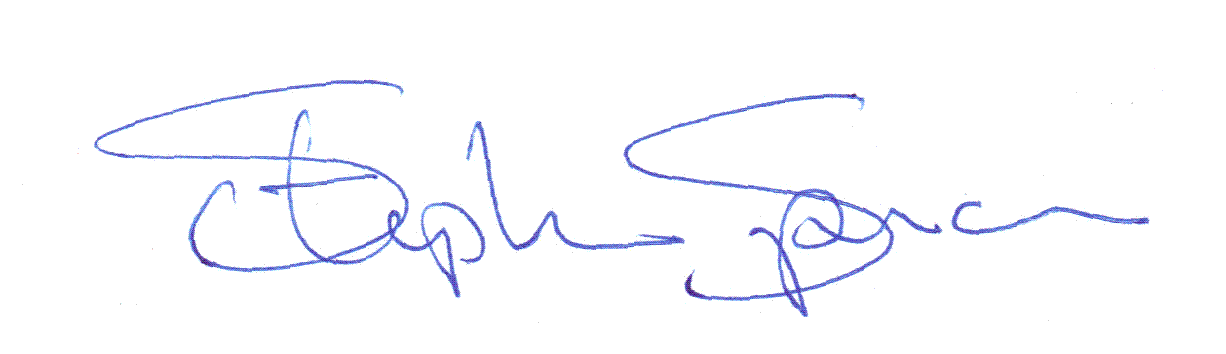 Stephen Spencer